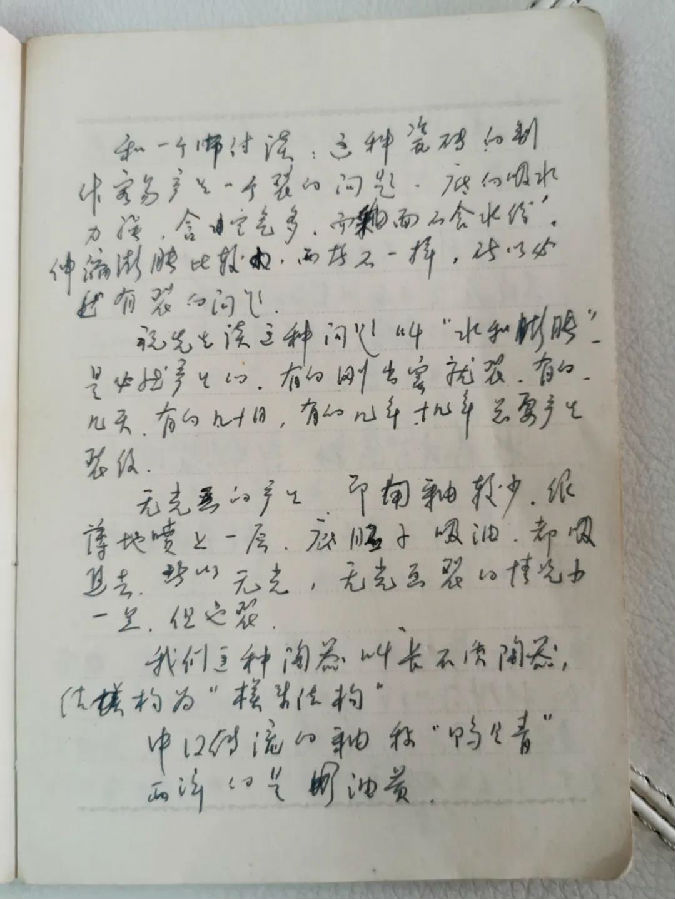 和一个师付谈：这种瓷砖的制
作容易产生一个裂的问题．底的吸水
力强，含空气多，而釉面不含水份，
伸缩澎胀比较大．两者不一样，所以必
然有裂的问题．
祝先生谈这种问题叫“水和膨胀”
是必然产生的．有的刚出窑就裂．有的
几天．有的几十日，有的几年十几年总要产生
裂纹．
无光面的产生．即用釉较少．很
薄地喷上一层．底胚子吸油．都吸
进去．所以无光，无光面裂的情况少
一些．但也裂．
我们这种陶器叫长石质陶器，
结构为“模来结构”
中江传流的釉称“鸭蛋青”
两流的是 油黄．